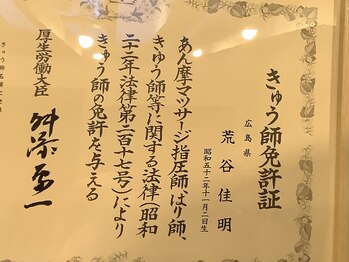 きゅう師免許証
広島県
荒谷佳明
昭和五十二年十一月二日生
あん摩マツサージ指圧師、はり師、
きゆう師等に関する法律(昭和
二十二年法律第二百十七号)により
きゅう師の免許を与える
厚生労働大臣
舛添要一